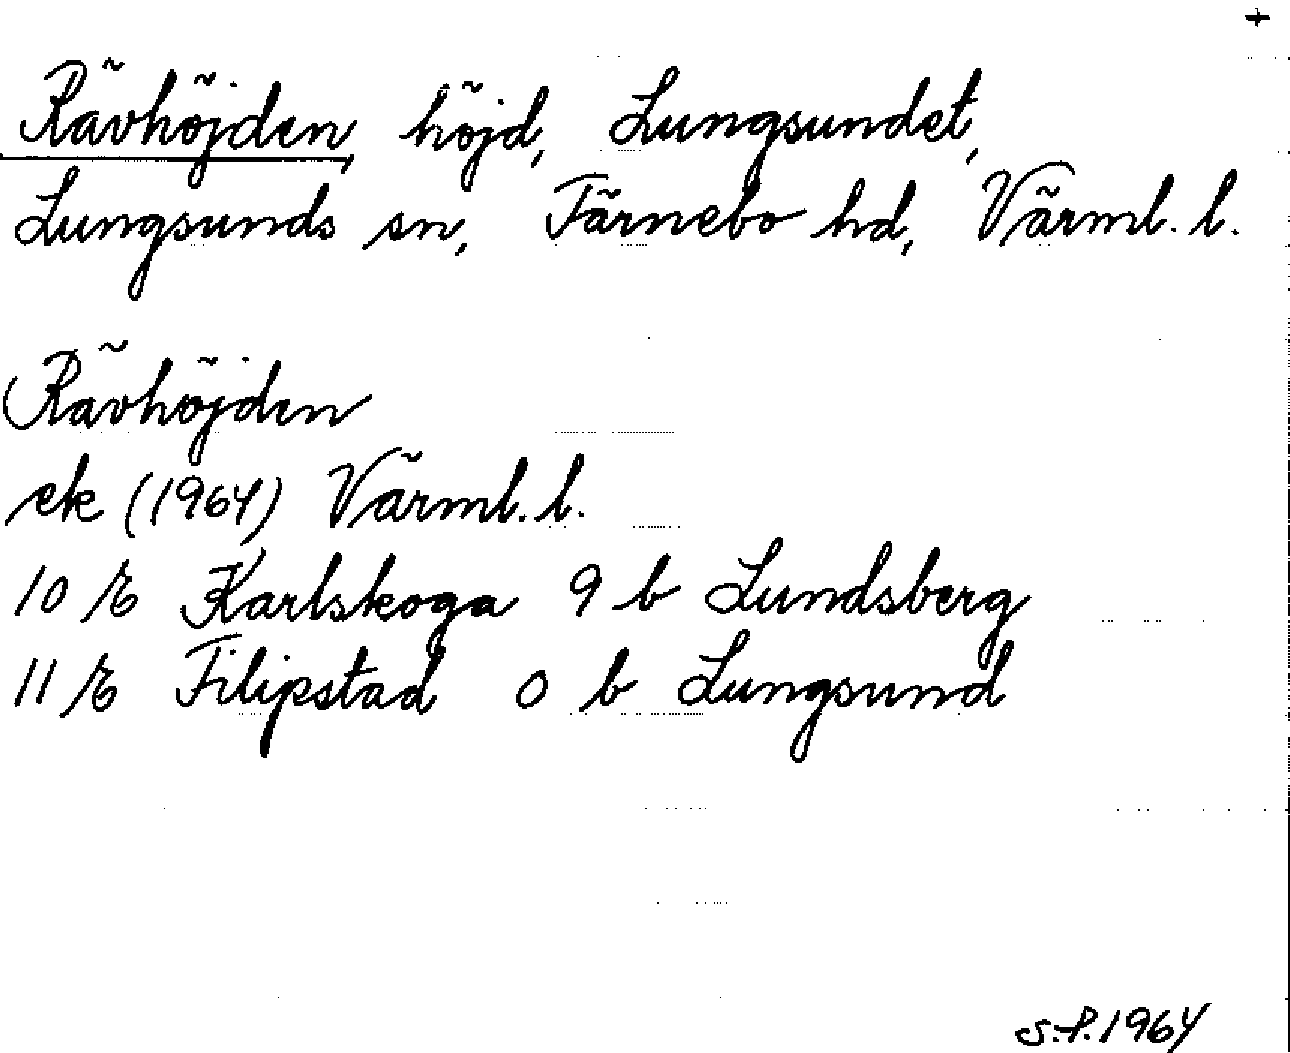 +
Rävhöjden, höjd, Lungsundet,
Lungsunds sn, Färnebo hd, Värml. l.
Rävhöjden
ek (1964) Värml. l.
10 E Karlskoga 9 b Lundsberg
11 E Filipstad 0 b Lungsund
S.P. 1964